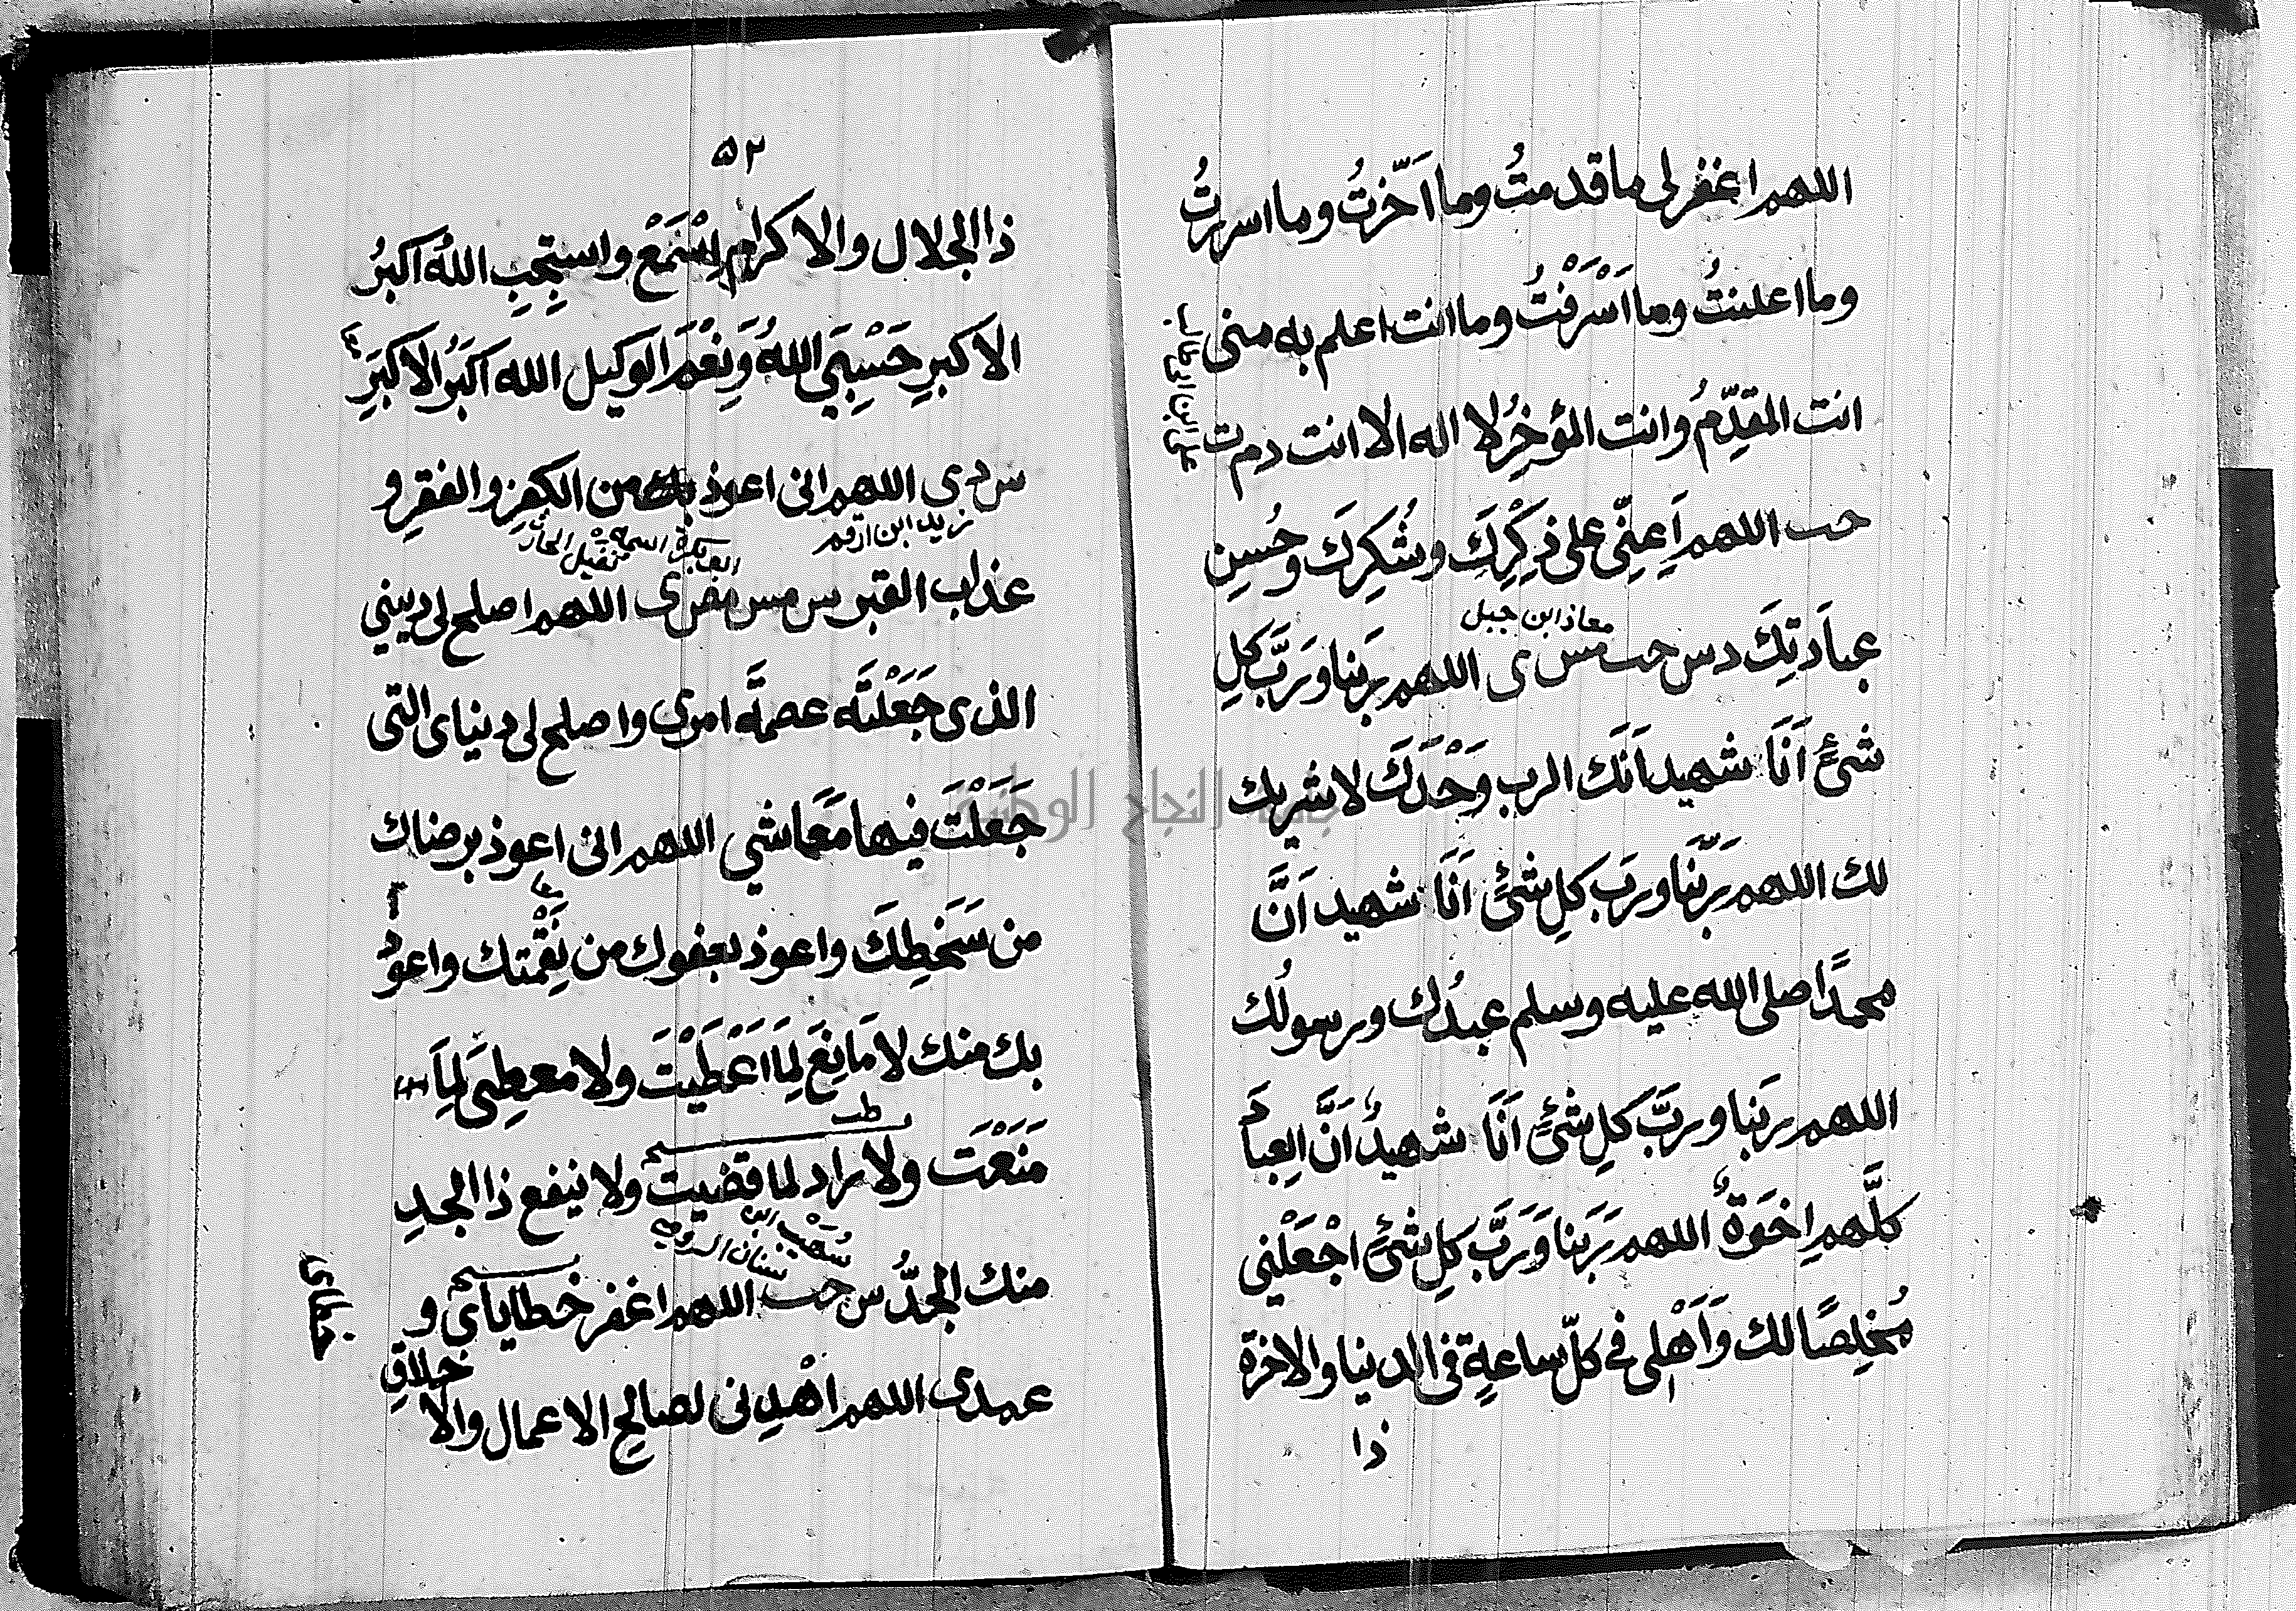 اللهم اغفر لى ما قدمتُ وما اَخّرتُ وما اسررتُ
وما اعلنتُ وما اَسْرَفْتُ وما انت اعلم به منى
على ابن ابى طالب
انت المقدِّمُ وانت المؤخِرُ لا اله الا انت د م ت
حب اللهم اَعِنِّى على ذِكْرِكَ وشُكرِكَ وحُسِن
معاذ ابن جبل
عبادَتِكَ د س حب مس ى اللهم رَبَنا ورَبَّ كلِ
شئٍ اَنَا شهيد اَنَك الرب وَحْدَكَ لا شريك
لك اللهم رَبّنَا ورَب كلِ شئٍ اَنَا شهيد اَنَّ
محمدًا صلى الله عليه وسلم عبدُك ورسولُك
اللهم رَبَنا وربَّ كلِ شئٍ اَنَا شهيدُ اَنَّ العِبادَ
كلَّهم اِخوَةٌ اللهم رَبَنا وَرَبَّ كلِ شئٍ اجْعَلْنِي
مُخلِصًا لك وَاَهْلِى فى كلّ ساعةٍ فى الدنيا والاخرة
ذا
۵۲
ذا الجلال والاكرام اِسْمَعْ واستجِبِ اللهُ اكبرُ
الاكبرِ حَسْبِيَ اللهُ وَنِعْمَ الوكيل الله اكبَرُ الاكبَرِ
س د ى اللهم انى اعوذ بك من الكفر والفقرِ و
زيد ابن ارقم
عذاب القبر س مس مص ى اللهم اصلح لى ديني
الذى جَعَلْتَه عصمَة امرى واصلح لى دنياى التى
جَعَلْتَ فيها مَعَاشي اللهم انى اعوذ برضاك
من سَخَطِكَ واعوذ بعفوك من نِقْمتك واعوذُ
بك منك لا مَانِعَ لِمَا اَعْطَيْتَ ولا معطِىَ لِمَا
طب
مَنَعْتَ ولا راد لما قضيت ولا ينفع ذا الجدِ
صُهَيْب ابن سنان الرومى
منك الجدُّ س حب اللهم اغفر خطاياى و
خطاى
عمدى اللهم اهْدِنى لصالح الاعمال والاخلاقِ